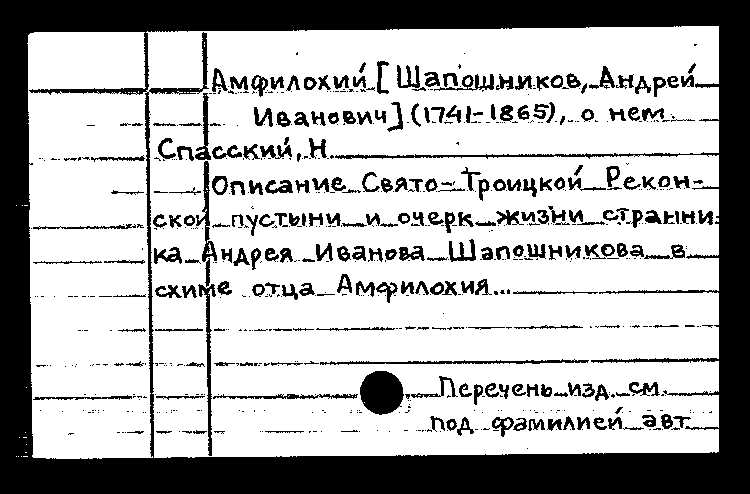 Амфилохий [Шапошников, Андрей
Иванович] (1741-1865), о нем.
Спасский, Н.
Описание Свято-Троицкой Рекон-
ской пустыни и очерк жизни странни-
ка Андрея Иванова Шапошникова в
схиме отца Амфилохия...
Перечень изд. см.
под фамилией авт.